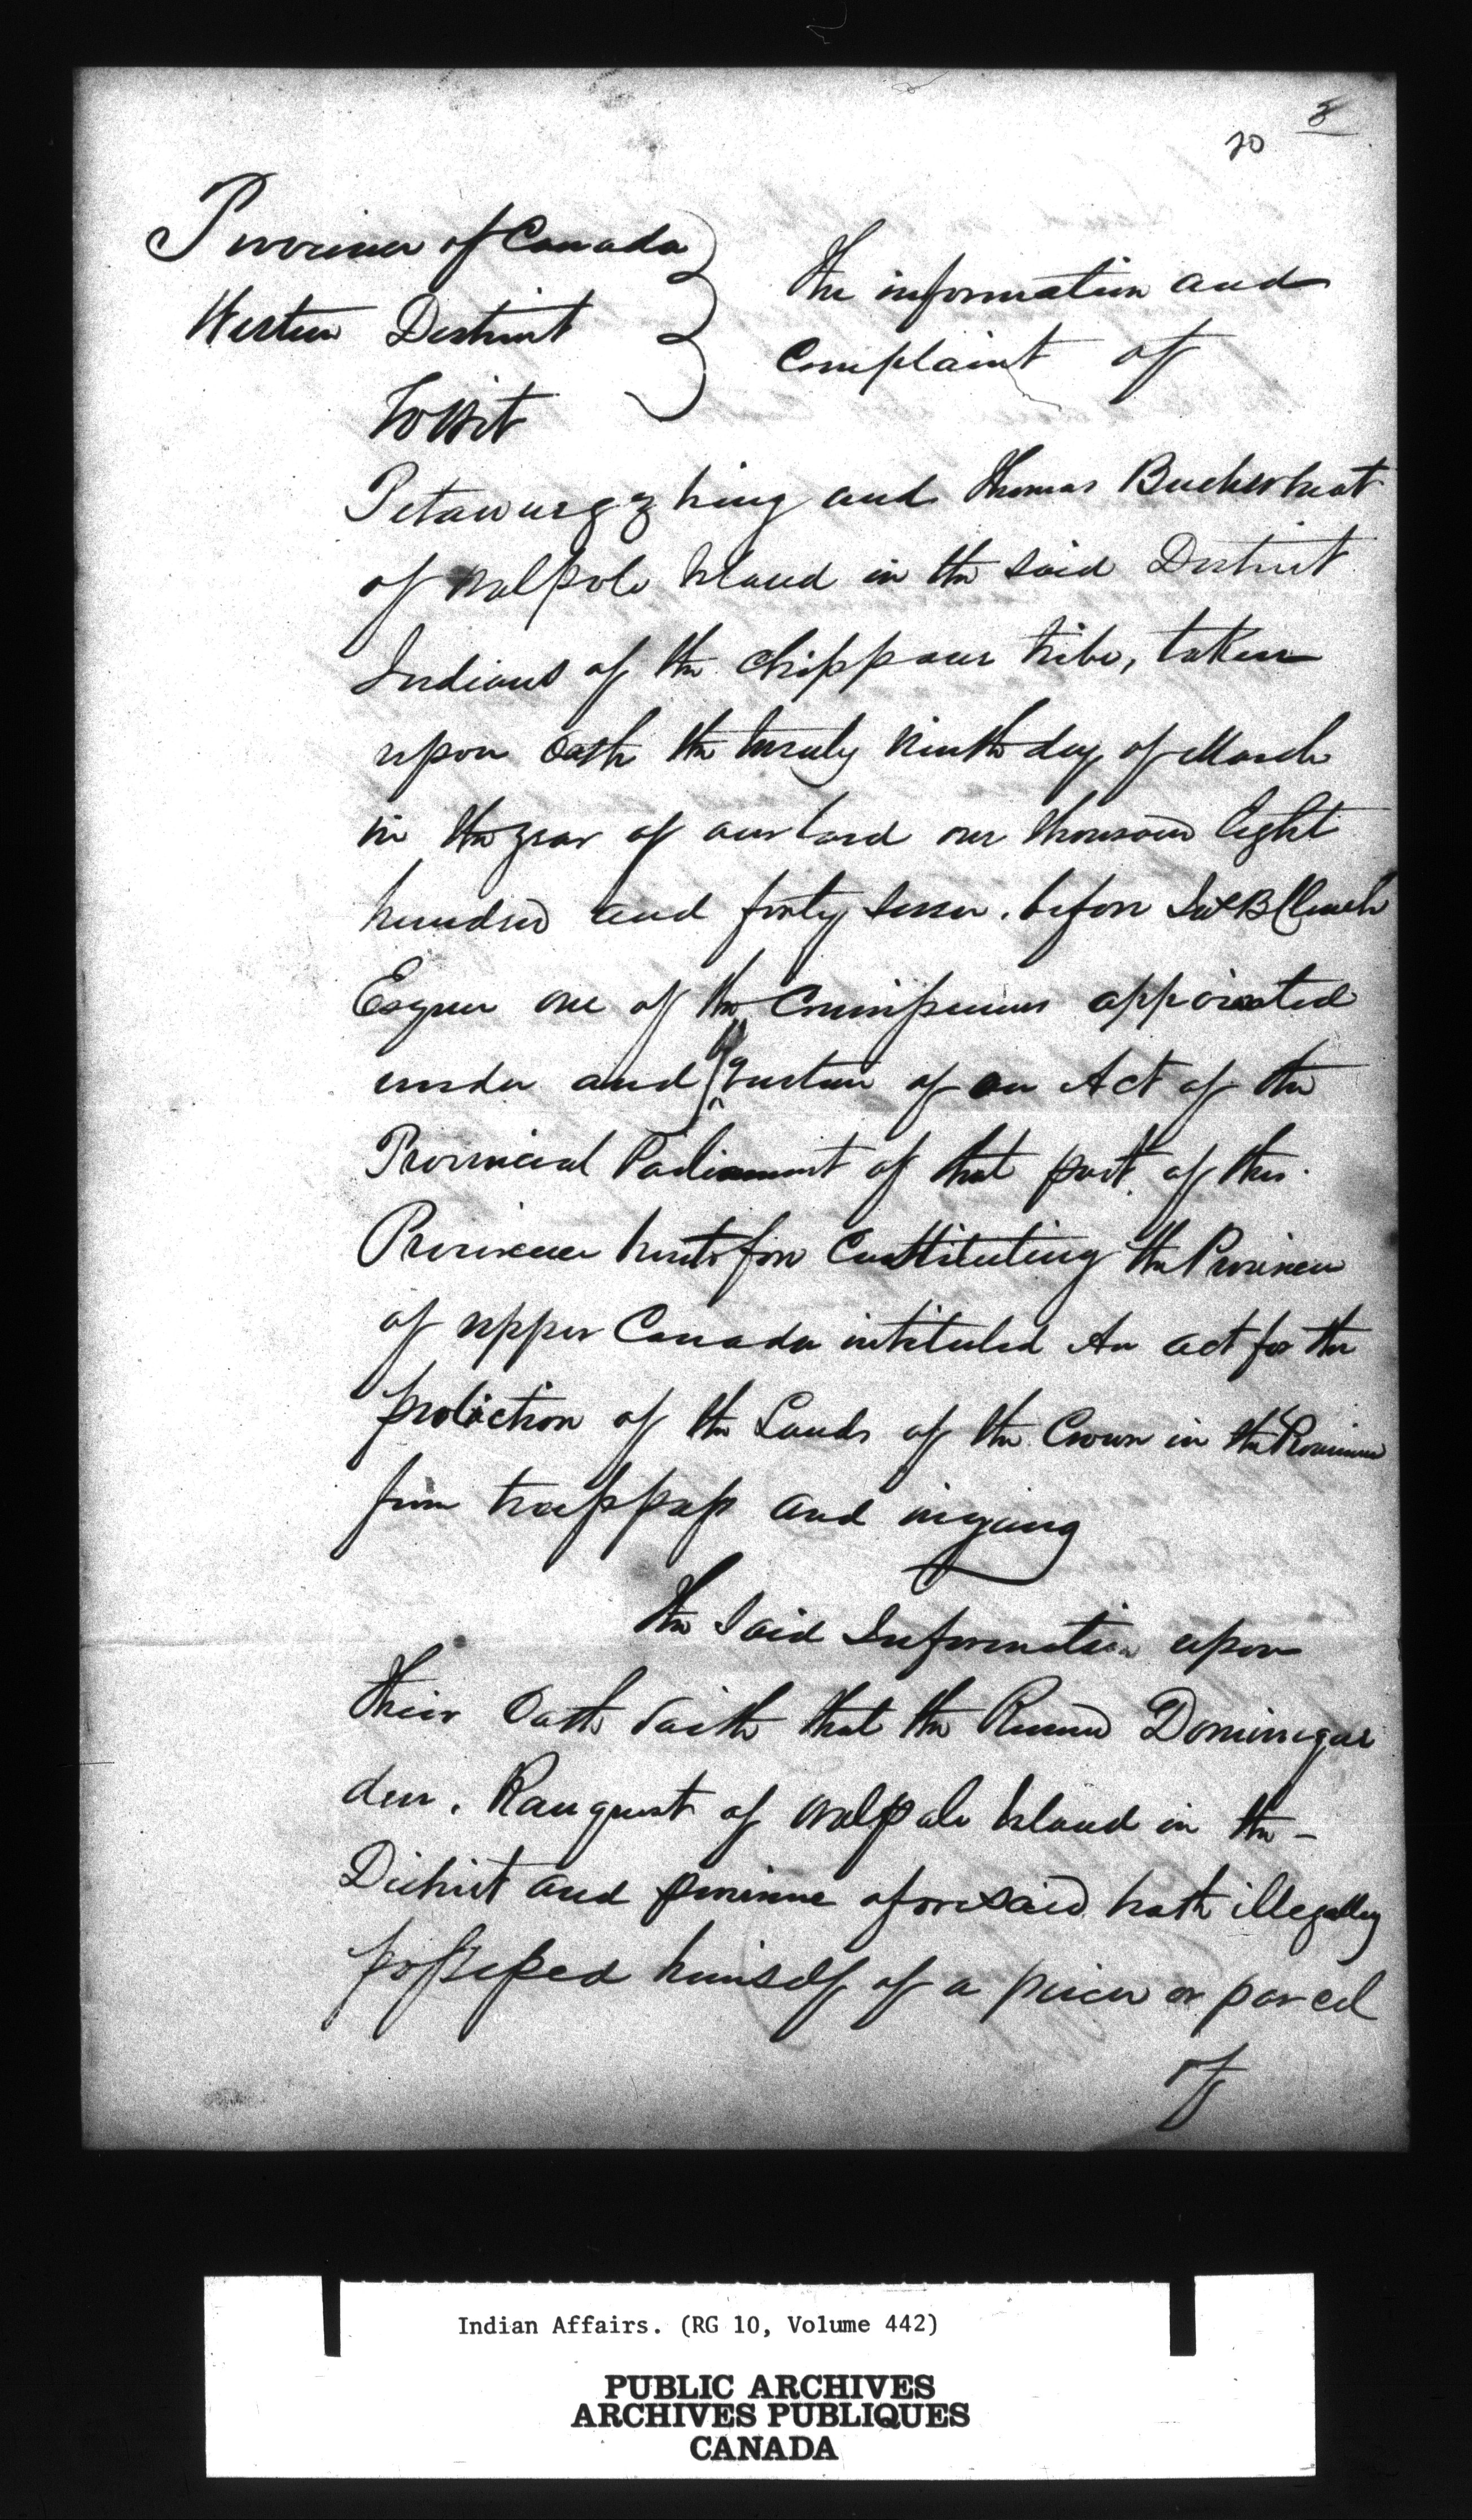 8
20
Province of Canada
Western District
To Wit
The information and
Complaint of
and Thomas Buckwheat
of Walpole Island in the said District
Indians of the Chippawa tribe, taken
upon Oath the twenty ninth day of March
in the year of our Lord one thousand Eight
hundred and forty seven. before B Clench
Esquire one of the Commissioners appointed
under and by virtue of an Act of the
Provincial Parliament of that part of this
Province heretofore Constituting the Province
of upper Canada intituled An act for the
protection of the Lands of the Crown in the Province
from trespass and injury
The Said Information upon
their Oath saith that the Dominique
du Ranquet of Walpole Island in the -
District and province aforesaid hath illegally
possessed himself of a piece or parcel
of
Indian Affairs. (RG 10, Volume 442)
PUBLIC ARCHIVES
ARCHIVES PUBLIQUES
CANADA